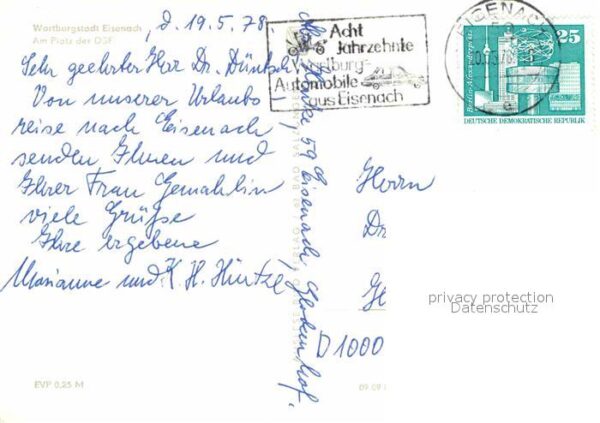 Wartburgstadt Eisenach
Am Platz der DSF
, d. 19.5.78.
Sehr geehrter Herr Dr.
Von unserer Urlaubs
reise nach Eisenach
senden Ihnen und
Ihrer Frau Gemahlin
viele Grüsse
Ihre ergebene
Marianne und K. H.
59 Eisenach
EVP 0,25 M
Acht
Jahrzehnte
Wartburg-
Automobile
aus Eisenach
EISENACH
25
Berlin-Alexanderplatz
DEUTSCHE DEMOKRATISCHE REPUBLIK
Herrn
Dr
D 1000
privacy protection
Datenschutz
09 09